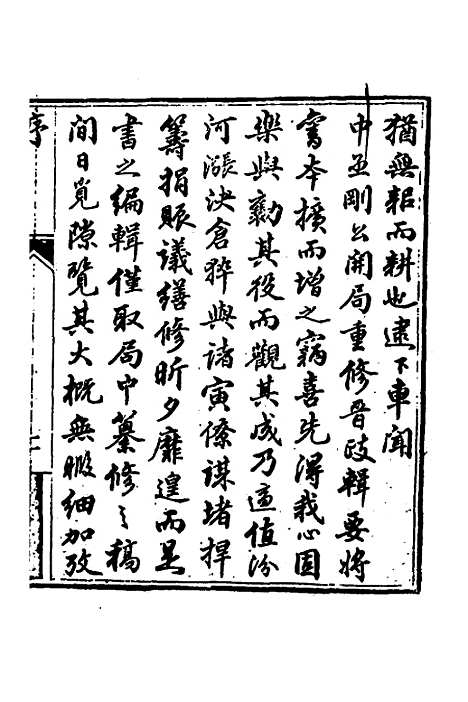 猶無耜而耕也逮下車聞
中丞剛公開局重修晉政輯要將
舊本擴而增之竊喜先得我心固
樂與勷其役而觀其成乃適值汾
河漲決倉猝與諸寅僚謀堵捍
籌捐賑議繕修昕夕靡遑而是
書之編輯僅取局中纂修之稿
間日覓隙覽其大概無暇細加攷
序